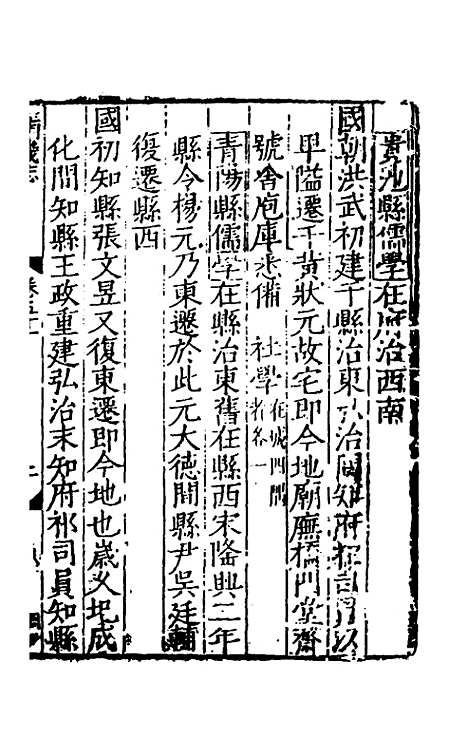 貴池縣儒學在府治西南
國朝洪武初建于縣治東弘治間知府祁司員以
卑隘遷于黃狀元故宅即今地廟廡橋門堂齋
號舍庖庫悉備 社學在城四隅者各一
青陽縣儒學在縣治東舊在縣西宋隆興二年
縣令楊元乃東遷於此元大德間縣尹吳廷輔
復遷縣西
國初知縣張文昱又復東遷即今地也歲久圯成
化間知縣王政重建弘治末知府祁司員知縣